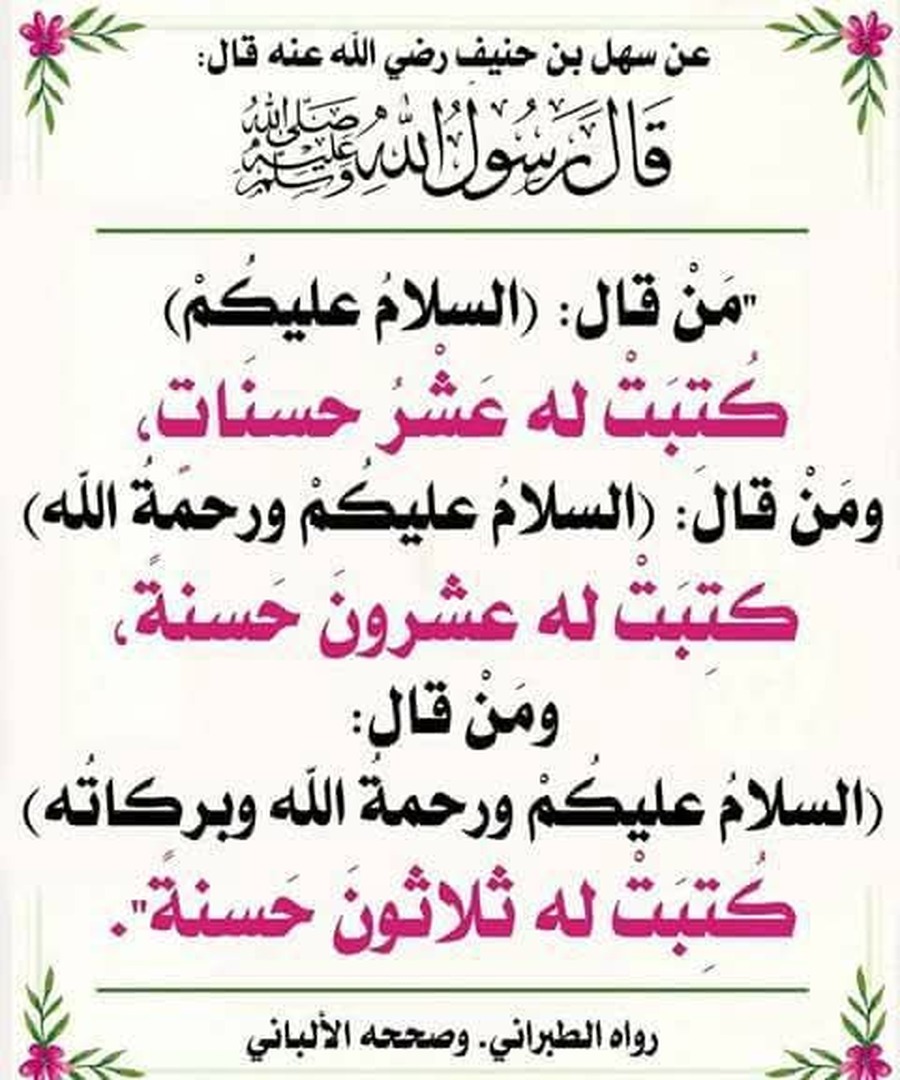 عن سهل بن حنيف رضي الله عنه قال:
قَالَ رَسُولُ اللهِ صَلَّى اللهُ عَلَيْهِ وَسَلَّمَ
"مَنْ قال: (السلامُ عليكُمْ)
كُتبَتْ له عَشْرُ حسنَات،
ومَنْ قالَ: (السلامُ عليكُمْ ورحمَةُ الله)
كتِبَتْ له عشرونَ حَسنةً،
ومَنْ قال:
(السلامُ عليكُمْ ورحمةُ الله وبركاتُه)
كُتِبَتْ له ثلاثونَ حَسنةً".
رواه الطبراني. وصححه الألباني